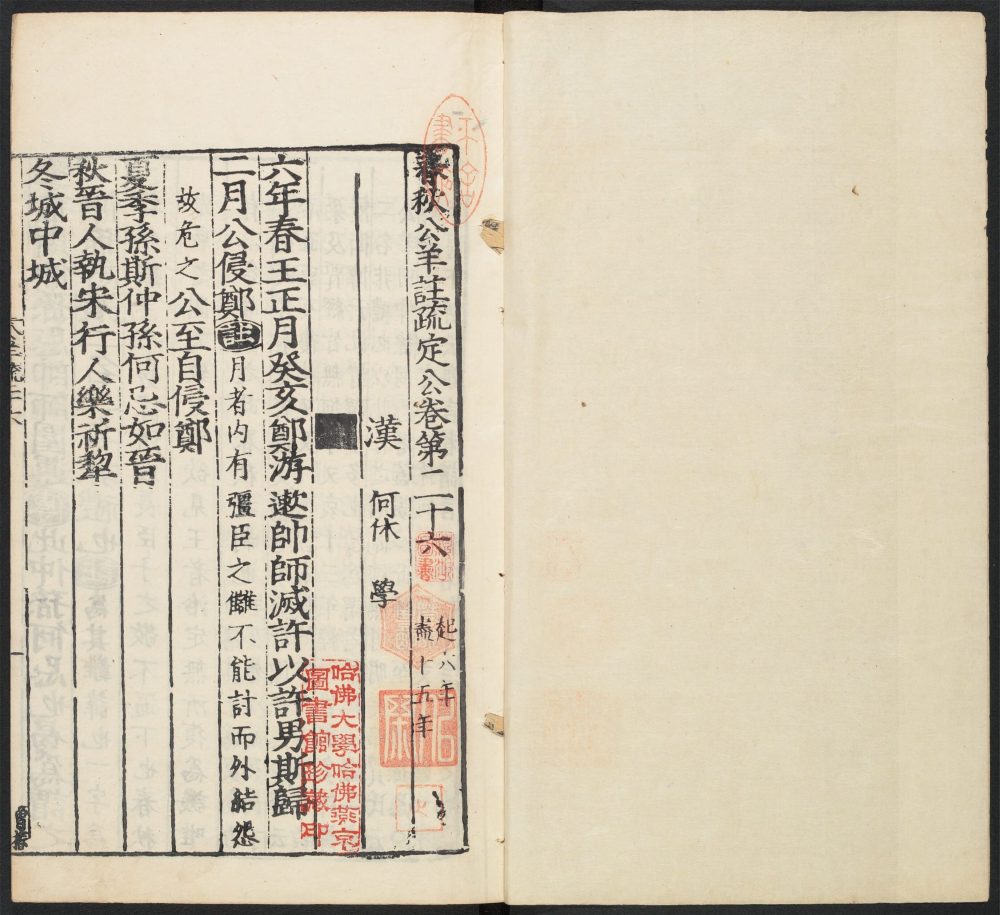 春秋公羊註疏定公卷第二十六
起六年
盡十五年
漢 何休 學
六年春王正月癸亥鄭游遬帥師滅許以許男斯歸
二月公侵鄭註月者內有彊臣之讎不能討而外結怨
故危之公至自侵鄭
夏季孫斯仲孫何忌如晉
秋晉人執宋行人樂祈犂
冬城中城
哈佛大學哈佛燕京
圖書館珍藏印